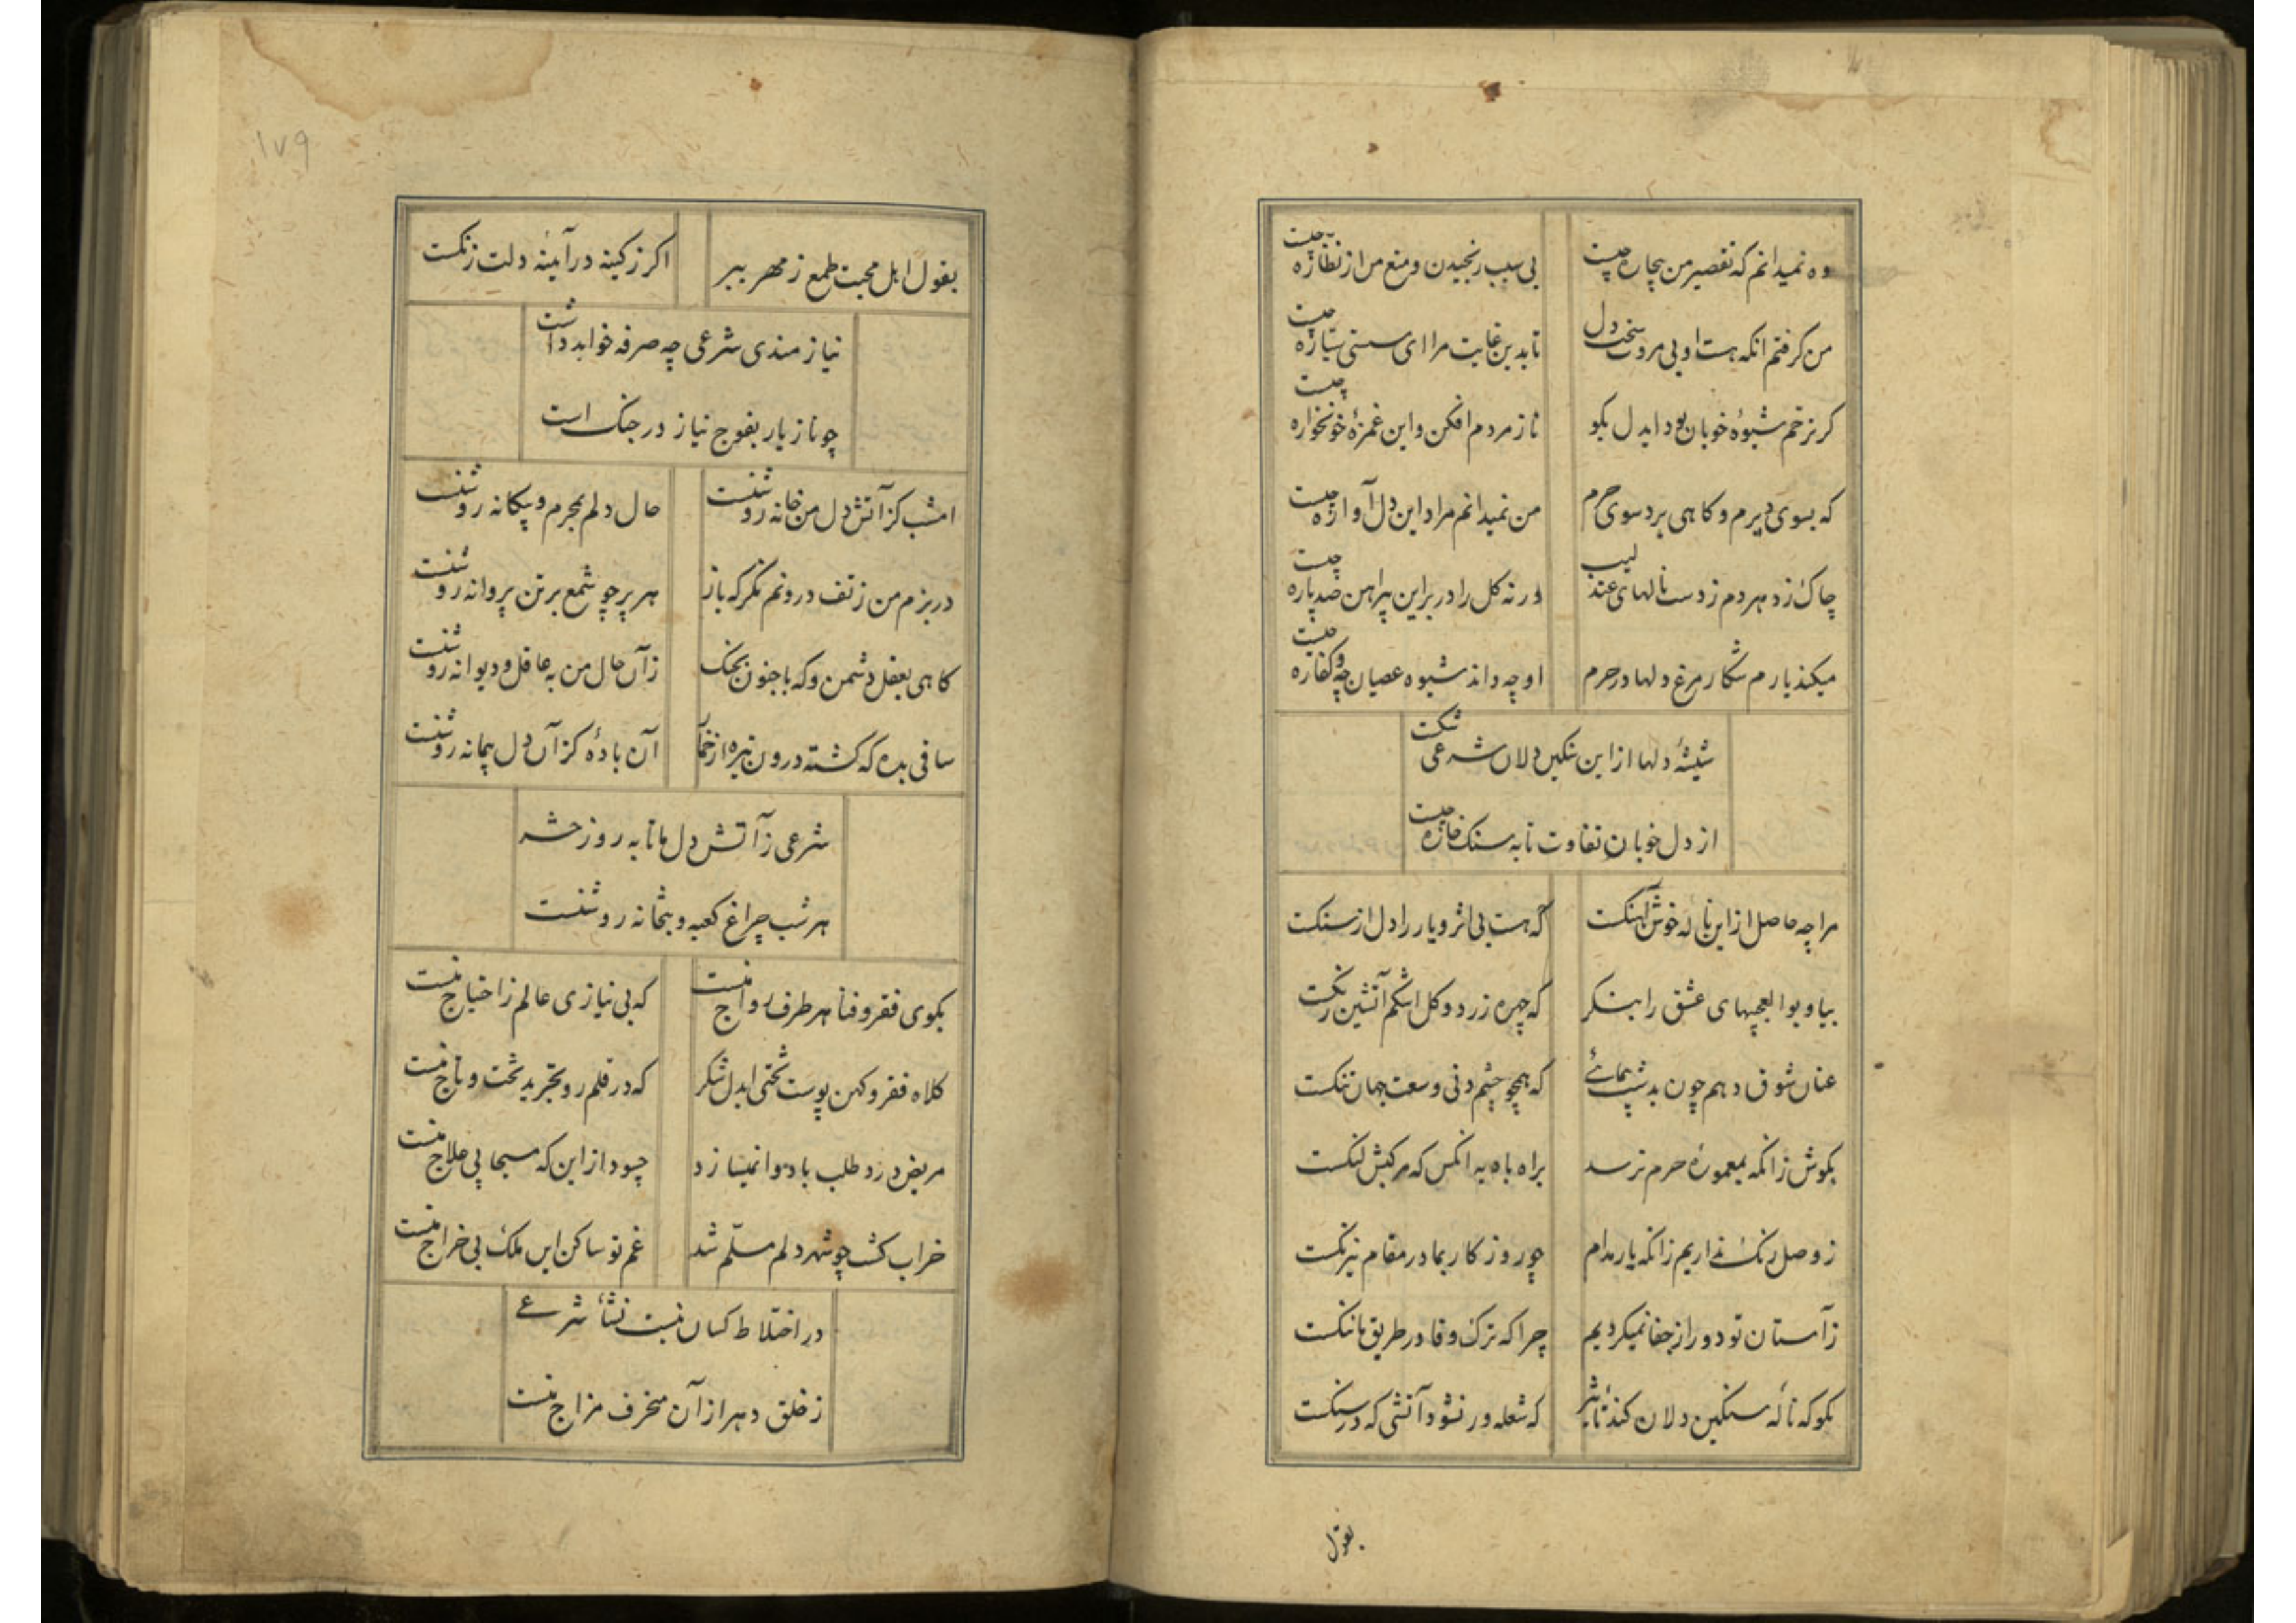 وه نمیدانم که تقصیر من بیچاره چیست
بی سبب رنجیدن و منع من از نظاره چیست
من گرفتم انکه هست او بی مروت سخت دل
تا بدین غایت مرا ای سستی ستاره چیست
کر نه زخم شیوهٔ خوبان بود ایدل بکو
ناز مردم افکن و این غمزهٔ خونخواره چیست
که بسوی دیرم و کاهی برد سوی حرم
من نمیدانم مراد این دل آواره چیست
چاک زد هر دم ز دست نالهای عندلیب
ورنه کل را در بر این پیراهن صد پاره چیست
میکند یارم شکار مرغ دلها در حرم
او چه داند شیوه عصیان چه و کفاره چیست
شیشهٔ دلها از این سنکین دلان شرعی شکست
از دل خوبان تفاوت تا به سنک خاره چیست
مرا چه حاصل از این ناله خوش آهنکست
که هست بی اثر و یار را دل از سنکست
بیا و بوالعجبیهای عشق را بنکر
که چهره زرد و کل اشکم آتشین رنکست
عنان شوق دهم چون بدشت پیمائی
که همچو چشم دنی وسعت جهان تنکست
بکوش زانکه بمعمورهٔ حرم نرسد
براه بادیه انکس که مرکبش لنکست
ز وصل رنک نداریم زانکه یار مدام
چو روزکار بما در مقام نیرنکست
ز آستان تو دور از جفا نمیکردیم
چرا که ترک وفا در طریق ما ننکست
بکو که ناله سنکین دلان کند تاثیر
که شعله ور نشود آتشی که در سنکست
بقول
۱۷۹
بقول اهل محبت طمع ز مهر ببر
اکر ز کینه در آینه دلت زنکست
نیازمندی شرعی چه صرفه خواهد داشت
چو ناز یار بفوج نیاز در جنک است
امشب کز آتش دل من خانه روشنست
حال دلم بمحرم و بیکانه روشنست
در بزم من ز تف درونم نکر که باز
هر پر چو شمع بر تن پروانه روشنست
کاهی بعقل دشمن و که با جنون بجنک
زآن حال من به عاقل و دیوانه روشنست
ساقی بده که کشته درون تیره از خمار
آن بادهٔ کز آن دل پیمانه روشنست
شرعی ز آتش دل ما تا به روز حشر
هر شب چراغ کعبه و بتخانه روشنست
بکوی فقر و فنا هر طرف رواج نیست
که بی نیازی عالم ز احتیاج نیست
کلاه فقر و کهن پوست تختی ایدل شکر
که در قلمرو تجرید تخت و تاج نیست
مریض درد طلب با دوا نمیسازد
چسود از این که مسیحا پی علاج نیست
خراب کشت چو شهر دلم مسلّم شد
غم تو ساکن این ملک بی خراج نیست
در اختلاط کسان نیست نشأ شرعی
ز خلق دهر از آن منحرف مزاج نیست